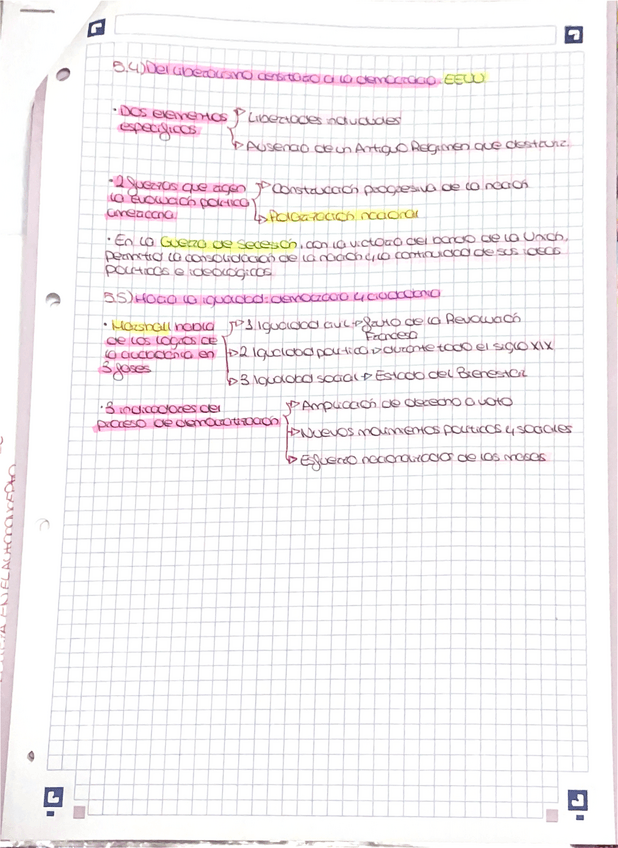 5.4) Del liberalismo censitario a la democracia: EEUU
· Dos elementos específicos
Libertades individuales
Ausencia de un Antiguo Régimen que destruir.
· 2 guerras que
la evolución política americana
Construcción progresiva de la nación
Polarización nacional
· En la Guerra de Secesión, con la victoria del bando de la Unión,
permitió la consolidación de la nación y la continuidad de sus ideas
políticas e ideológicas
5.5) Hacia la igualdad: democracia y ciudadanía
· Marshall habla de los logros de la ciudadanía en 3 fases
1. Igualdad civil → fruto de la Revolución Francesa
2. Igualdad política → durante todo el siglo XIX
3. Igualdad social → Estado del Bienestar
· 3 indicadores del proceso de democratización
Ampliación de derecho a voto
Nuevos movimientos políticos y sociales
Esfuerzo nacionalizador de las masas